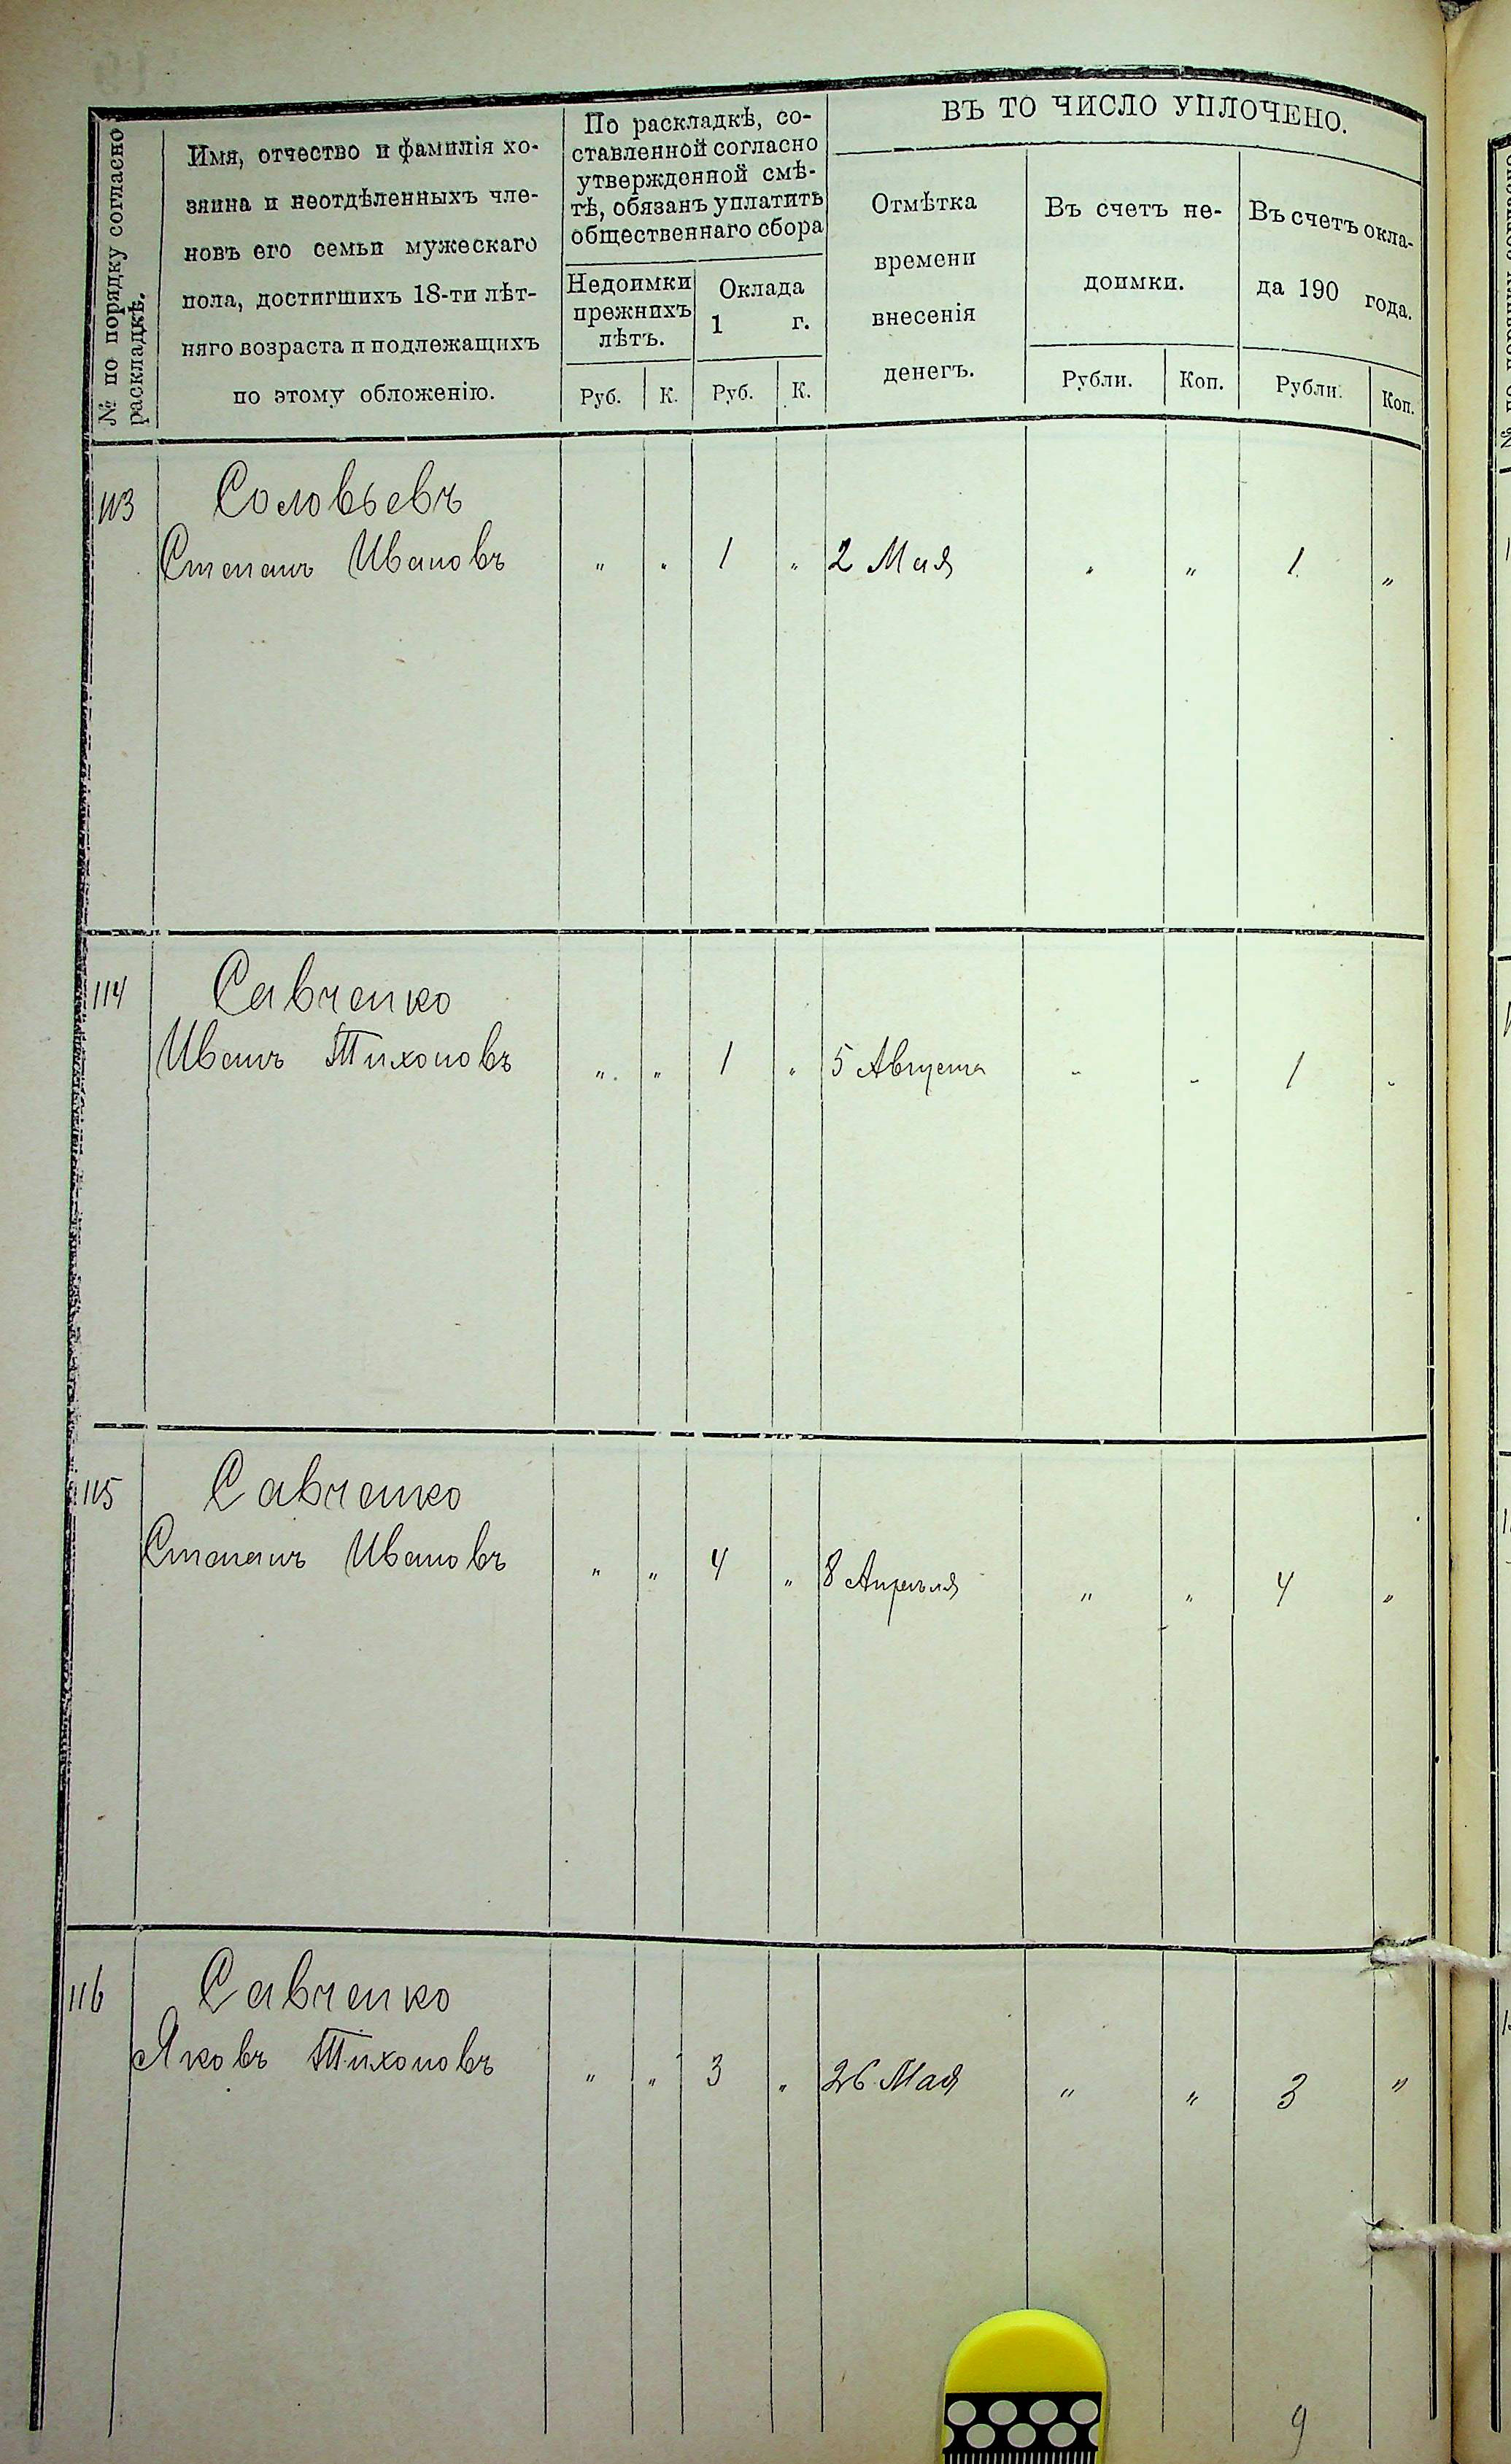 № по порядку согласно
раскладкѣ.
Имя, отчество и фамилія хо-
зяина и неотдѣленныхъ чле-
новъ его семьи мужескаго
пола, достигшихъ 18-ти лѣт-
няго возраста и подлежащихъ
по этому обложенію.
По раскладкѣ, со-
ставленной согласно
утвержденной смѣ-
тѣ, обязанъ уплатить
общественнаго сбора
Недоимки
прежнихъ
лѣтъ.
Оклада
1 г.
Руб. К. Руб. К.
ВЪ ТО ЧИСЛО УПЛОЧЕНО.
Отмѣтка
времени
внесенія
денегъ.
Въ счетъ не-
доимки.
Рубли. Коп.
Въ счетъ окла-
да 190 года.
Рубли. Коп.
113 Соловьевъ
Степанъ Ивановъ „ „ 1 „ 2 Мая „ „ 1 „
114 Савченко
Иванъ Тихоновъ „ „ 1 „ 5 Августа „ „ 1 „
115 Савченко
Степанъ Ивановъ „ „ 4 „ 8 Апрѣля „ „ 4 „
116 Савченко
Яковъ Тихоновъ „ „ 3 „ 26 Мая „ „ 3 „
9